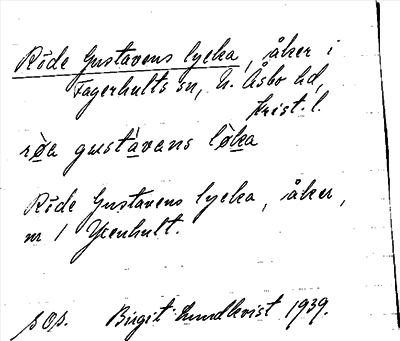 Röde Gustavens lycka, åker i
Fagerhults sn, N. Åsbo hd,
Krist. l.
røa gustàvans lỏka
Röde Gustavens lycka, åker,
nr 1 Yxenhult.
sos. Birgit Lundkvist 1939.